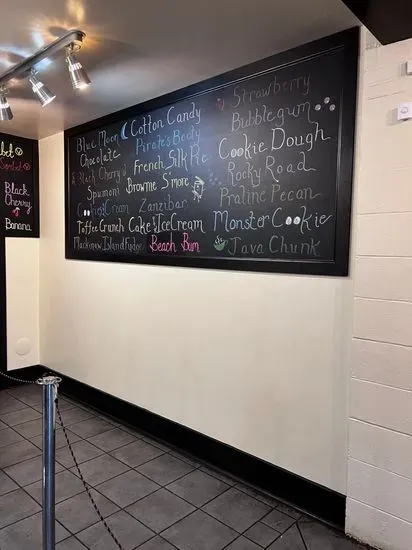 bet
Sorbet
Black
Cherry
Banana
Blue Moon
Chocolate
Black Cherry
Spumoni
Cream
Toffee Crunch
Mackinaw Island Fudge
Cotton Candy
Pirate's Booty
French Silk Pie
Brownie S'more
Zanzibar
Cake & Ice Cream
Beach Bum
Strawberry
Bubblegum
Cookie Dough
Rocky Road
Praline Pecan
Monster Cookie
Java Chunk